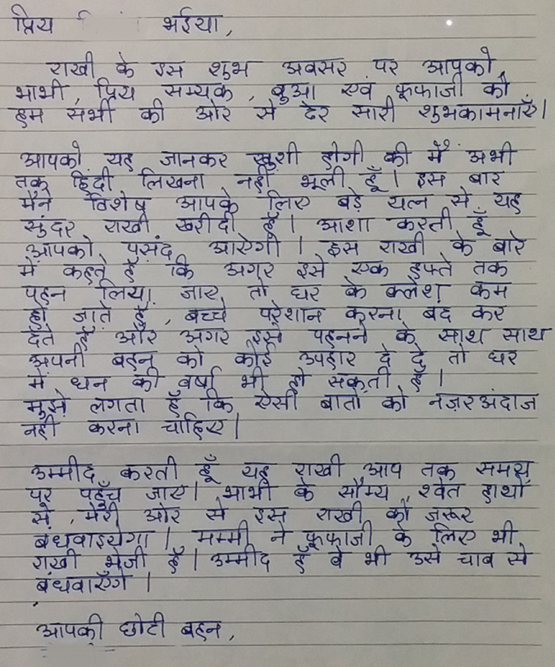 प्रिय भईया,
राखी के इस शुभ अवसर पर आपको,
भाभी, प्रिय सम्यक, बुआ एवं फूफाजी को
हम सभी की ओर से ढेर सारी शुभकामनाएँ।
आपको यह जानकर खुशी होगी की मैं अभी
तक हिंदी लिखना नहीं भूली हूँ। इस बार
मैंने विशेष आपके लिए बड़े यत्न से यह
सुंदर राखी खरीदी है। आशा करती हूँ
आपको पसंद आएगी। इस राखी के बारे
में कहते हैं कि अगर इसे एक हफ्ते तक
पहन लिया जाए तो घर के क्लेश कम
हो जाते हैं, बच्चे परेशान करना बंद कर
देते हैं और अगर इसे पहनने के साथ साथ
अपनी बहन को कोई उपहार दे दे तो घर
में धन की वर्षा भी हो सकती है।
मुझे लगता है कि ऐसी बातों को नज़रअंदाज
नहीं करना चाहिए।
उम्मीद करती हूँ यह राखी आप तक समय
पर पहुँच जाए। भाभी के सौम्य, श्वेत हाथों
से, मेरी ओर से इस राखी को जरूर
बंधवाइयेगा। मम्मी ने फूफाजी के लिए भी
राखी भेजी है। उम्मीद है वे भी उसे चाव से
बंधवाएँगे।
आपकी छोटी बहन,